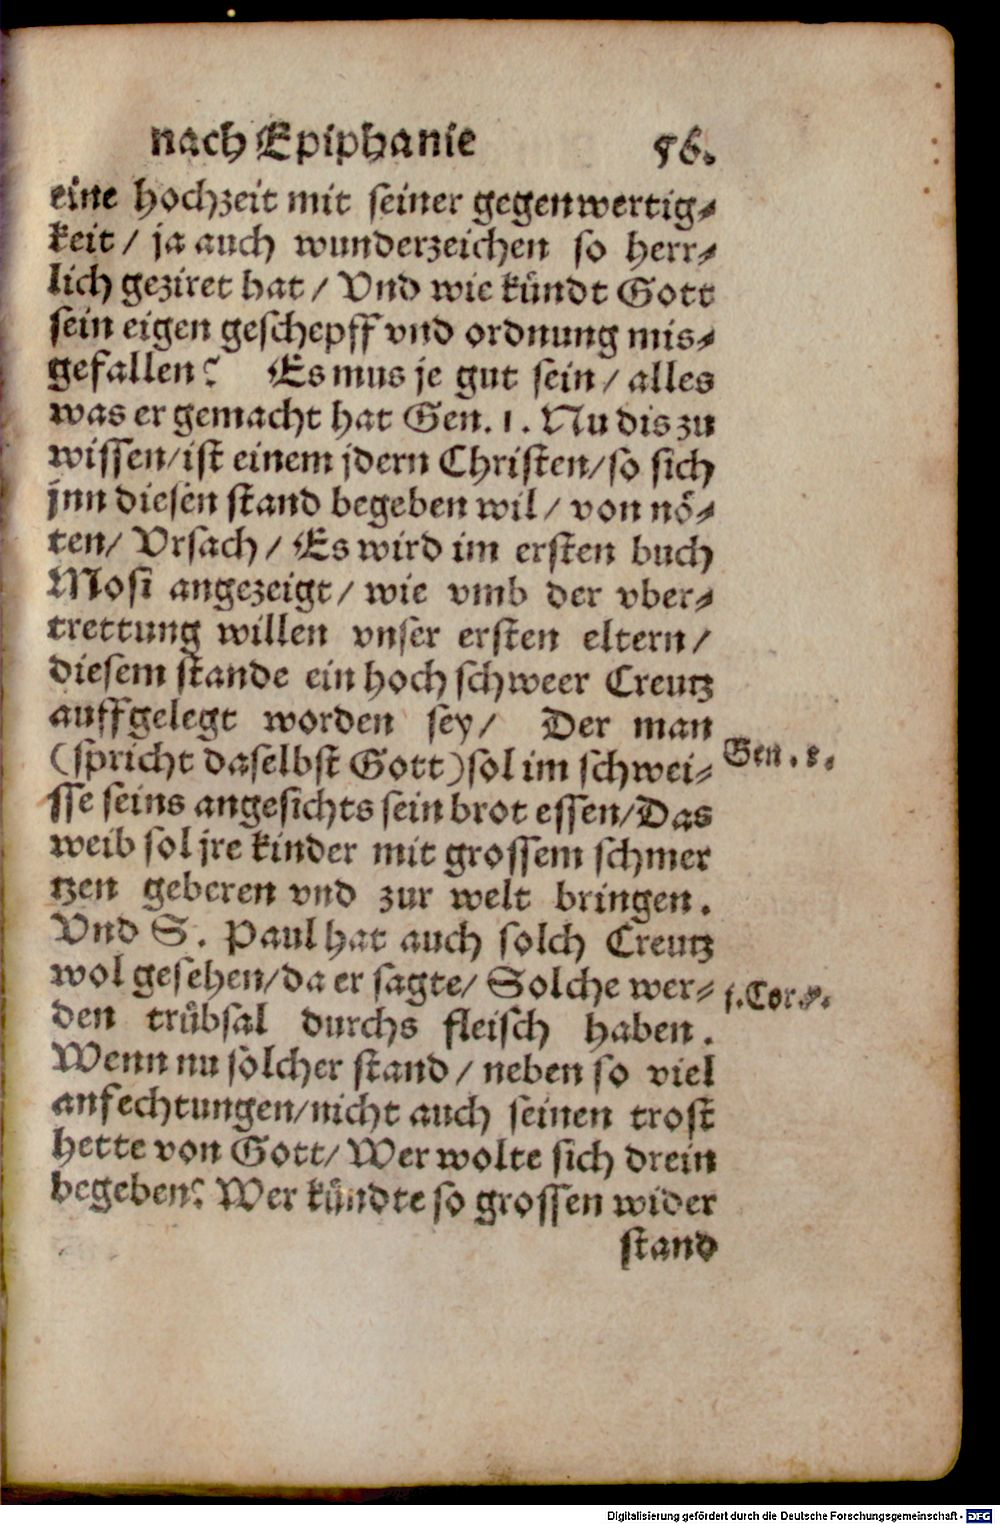 nach Epiphanie 56.
eine hochzeit mit seiner gegenwertig⸗
keit / ja auch wunderzeichen so herr⸗
lich geziret hat / Vnd wie kündt Gott
sein eigen geschepff vnd ordnung mis⸗
gefallen? Es mus je gut sein / alles
was er gemacht hat Gen. 1. Nu dis zu
wissen/ist einem jdern Christen/so sich
jnn diesen stand begeben wil / von nö⸗
ten/ Vrsach / Es wird im ersten buch
Mosi angezeigt / wie vmb der vber⸗
trettung willen vnser ersten eltern /
diesem stande ein hoch schweer Creutz
auffgelegt worden sey / Der man
(spricht daselbst Gott)sol im schwei⸗
Gen.
sse seins angesichts sein brot essen/Das
weib sol jre kinder mit grossem schmer
tzen geberen vnd zur welt bringen.
Vnd S. Paul hat auch solch Creutz
wol gesehen/da er sagte/ Solche wer⸗
1.Cor.
den trübsal durchs fleisch haben.
Wenn nu solcher stand / neben so viel
anfechtungen/nicht auch seinen trost
hette von Gott/ Wer wolte sich drein
begeben? Wer kündte so grossen wider
stand
Digitalisierung gefördert durch die Deutsche Forschungsgemeinschaft - DFG